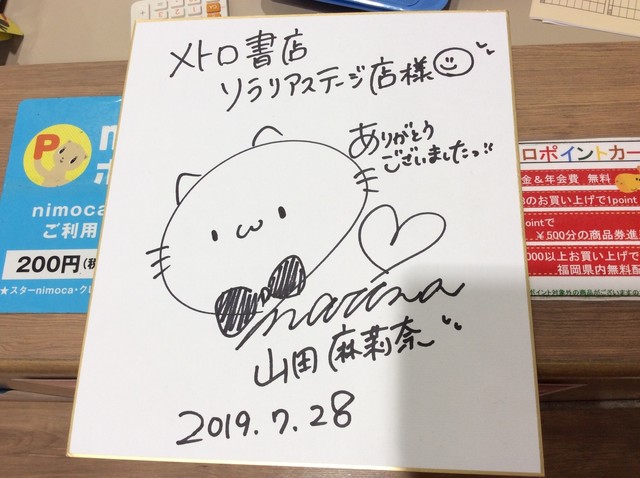 メトロ書店
ソラリアステージ店様
ありがとう
ございましたっ
marina
山田麻莉奈
2019.7.28
P
nimoca
ご利用
200円(税
★スターnimoca・クレ
ロポイントカー
金&年会費 無料
のお買い上げで1point
pointで
¥500分の商品券進
000以上お買い上げで
福岡県内無料配
ポイント対象外の商品がございますの